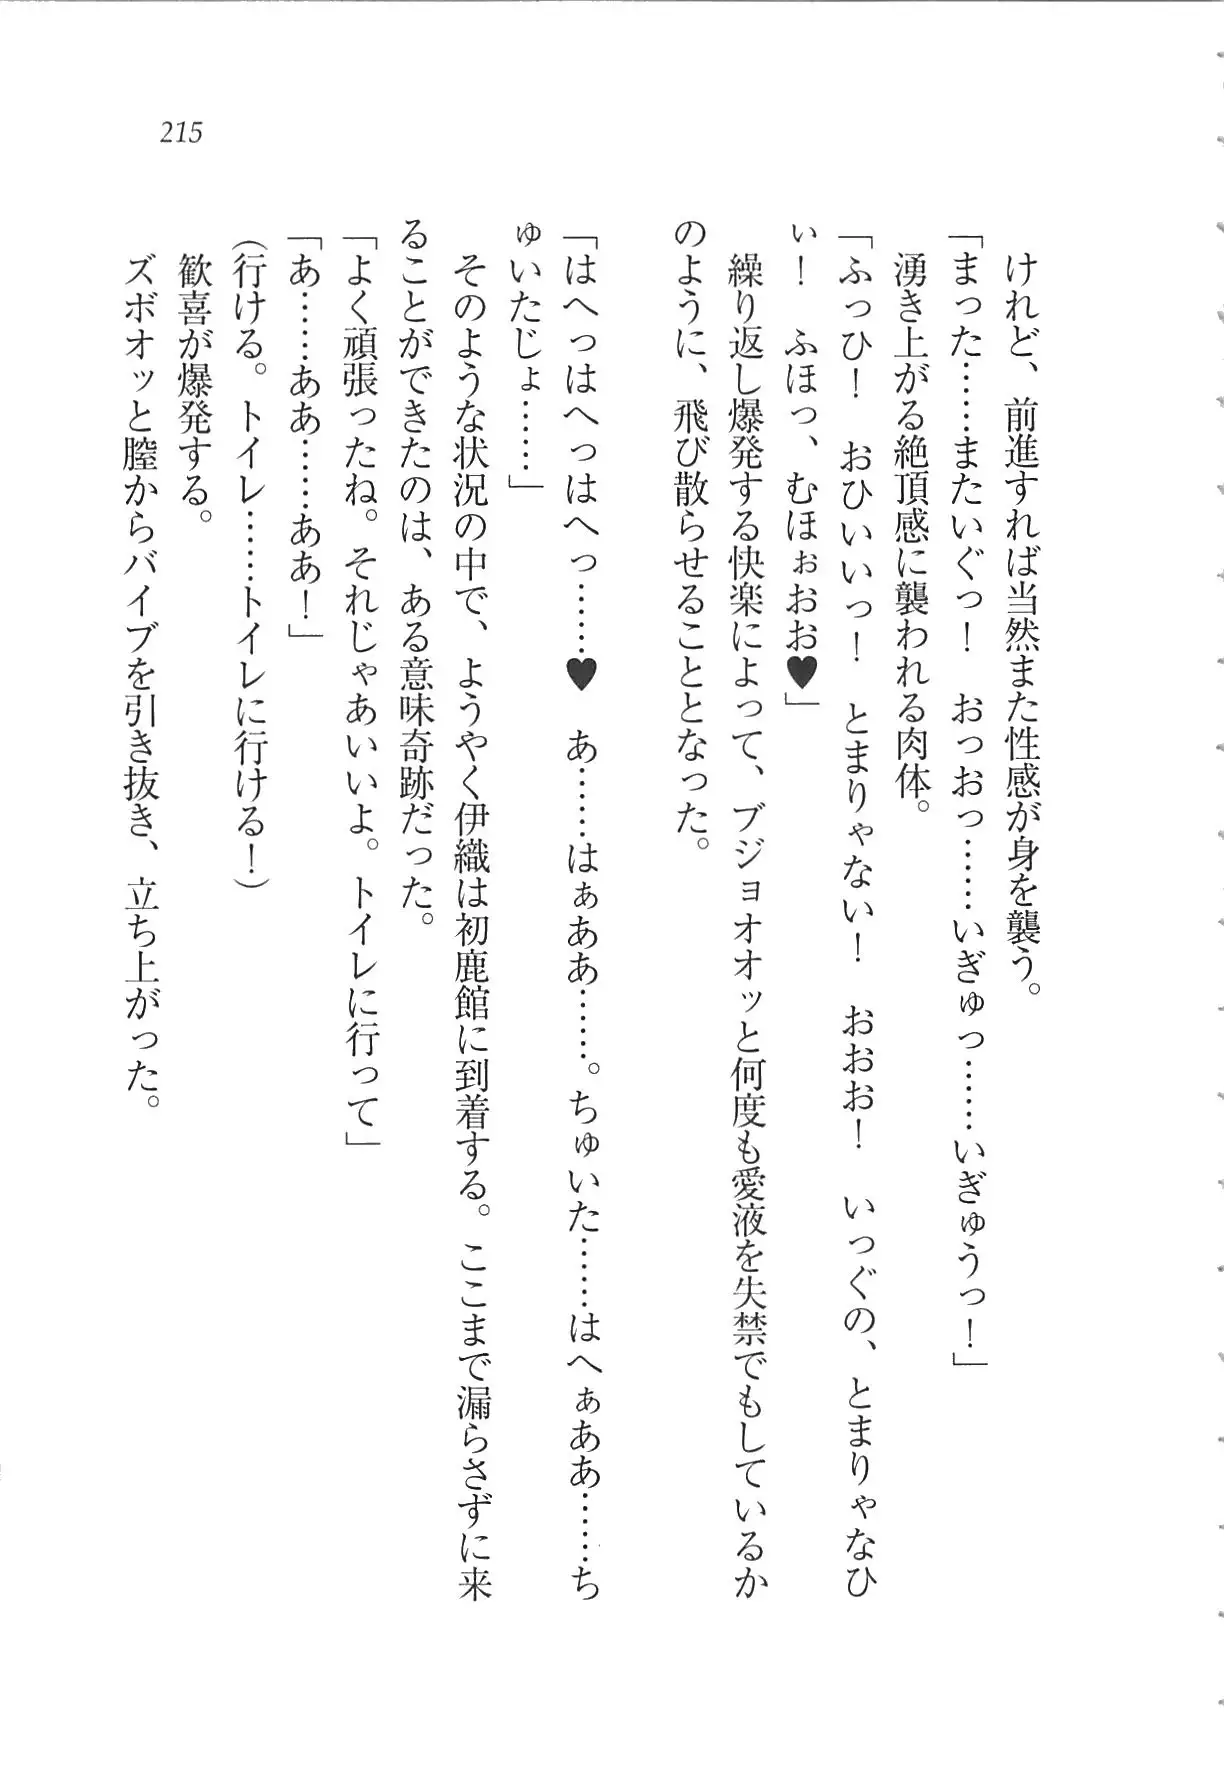 215
けれど、前進すれば当然また性感が身を襲う。
「まった……またいぐっ！　おっおっ……いぎゅっ……いぎゅうっ！」
湧き上がる絶頂感に襲われる肉体。
「ふっひ！　おひいいっ！　とまりゃない！　おおお！　いっぐの、とまりゃなひ
ぃ！　ふほっ、むほぉおお♥」
繰り返し爆発する快楽によって、ブジョオオッと何度も愛液を失禁でもしているか
のように、飛び散らせることとなった。
「はへっはへっはへっ……♥　あ……はぁああ……。ちゅいた……はへぁああ……ち
ゅいたじょ……」
そのような状況の中で、ようやく伊織は初鹿館に到着する。ここまで漏らさずに来
ることができたのは、ある意味奇跡だった。
「よく頑張ったね。それじゃあいいよ。トイレに行って」
「あ……ああ……ああ！」
（行ける。トイレ……トイレに行ける！）
歓喜が爆発する。
ズボオッと膣からバイブを引き抜き、立ち上がった。